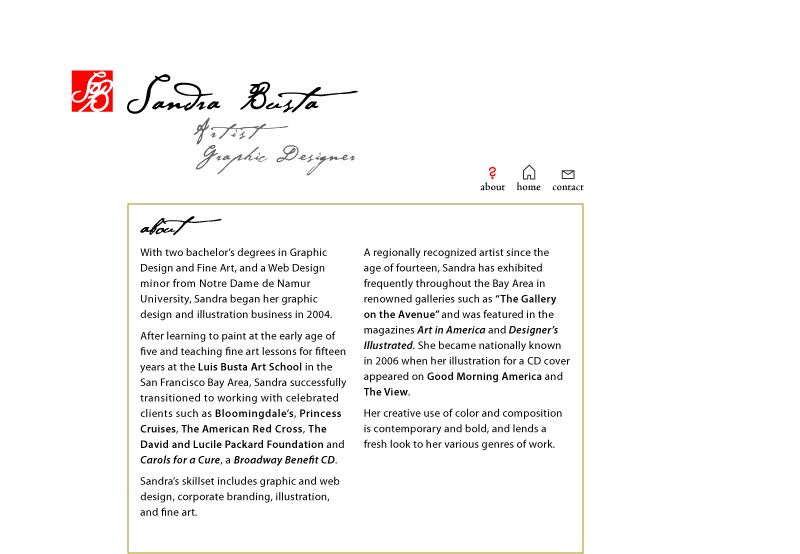 SB
Sandra Busta
Artist
Graphic Designer
about home contact
about
With two bachelor's degrees in Graphic
Design and Fine Art, and a Web Design
minor from Notre Dame de Namur
University, Sandra began her graphic
design and illustration business in 2004.
After learning to paint at the early age of
five and teaching fine art lessons for fifteen
years at the Luis Busta Art School in the
San Francisco Bay Area, Sandra successfully
transitioned to working with celebrated
clients such as Bloomingdale's, Princess
Cruises, The American Red Cross, The
David and Lucile Packard Foundation and
Carols for a Cure, a Broadway Benefit CD.
Sandra's skillset includes graphic and web
design, corporate branding, illustration,
and fine art.
A regionally recognized artist since the
age of fourteen, Sandra has exhibited
frequently throughout the Bay Area in
renowned galleries such as "The Gallery
on the Avenue" and was featured in the
magazines Art in America and Designer's
Illustrated. She became nationally known
in 2006 when her illustration for a CD cover
appeared on Good Morning America and
The View.
Her creative use of color and composition
is contemporary and bold, and lends a
fresh look to her various genres of work.